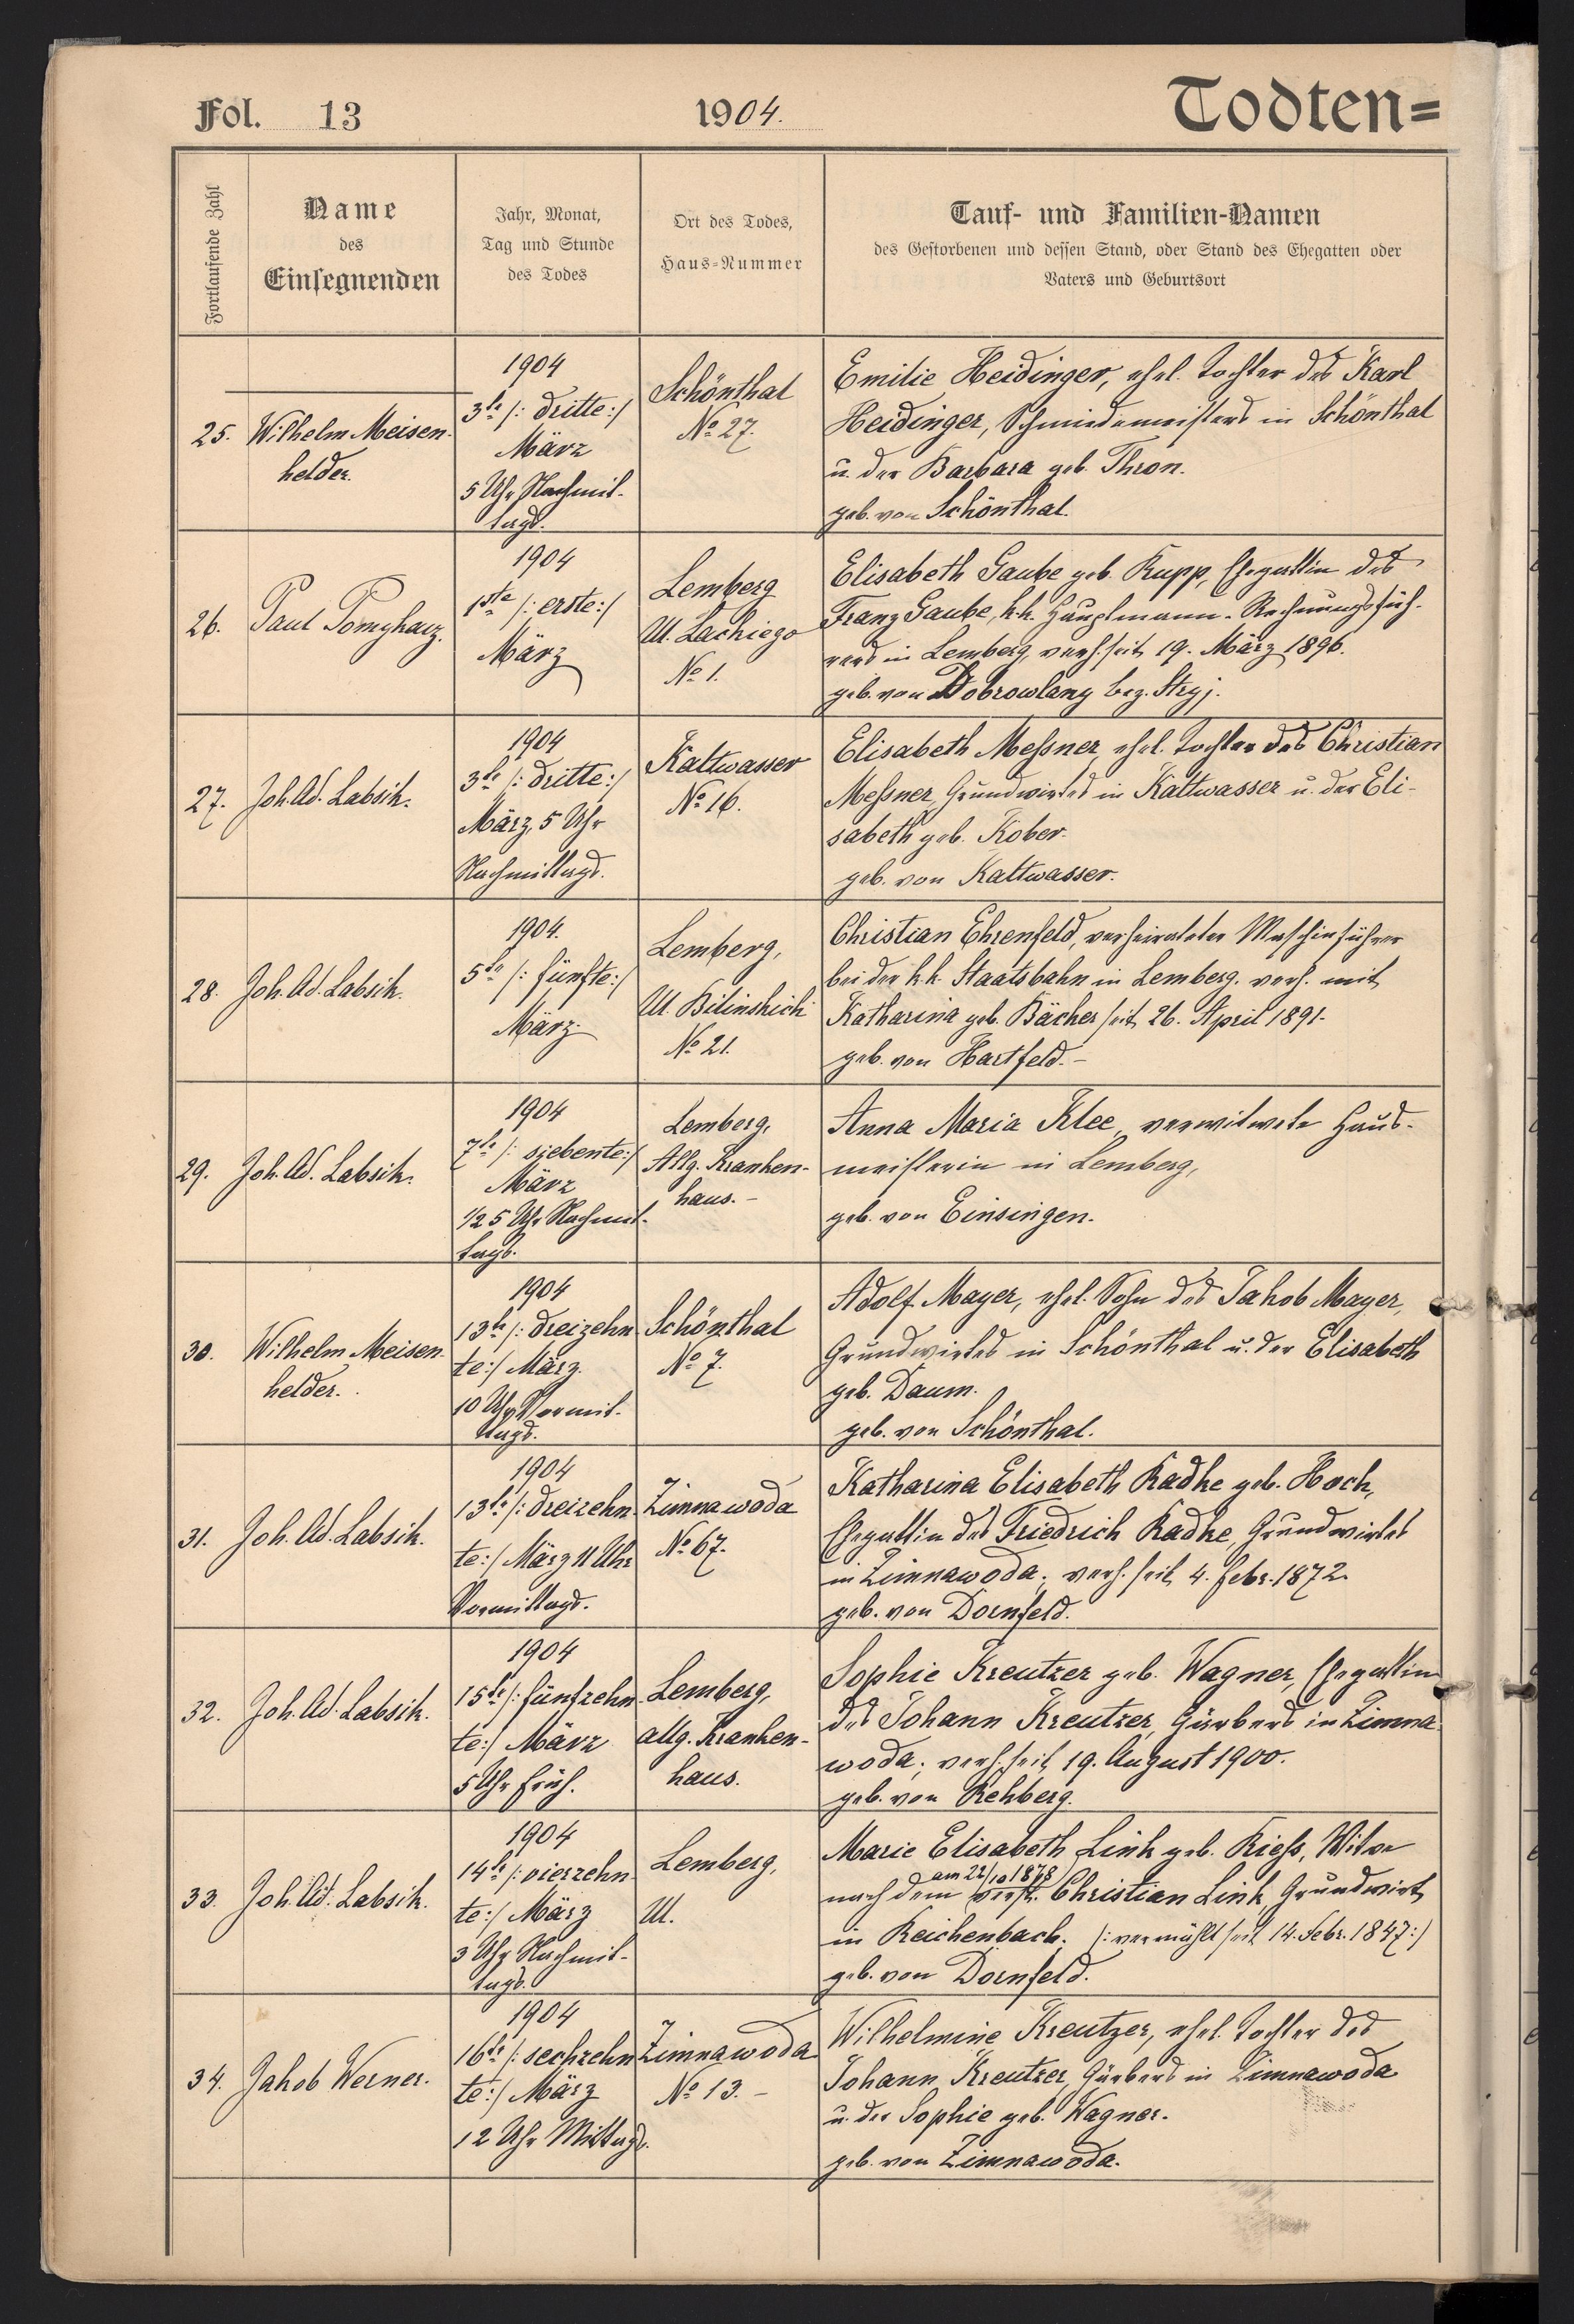 Fol. 13
1904.
Todten=
Fortlaufende Zahl
Name
des
Einsegnenden
Jahr, Monat,
Tag und Stunde
des Todes
Ort des Todes,
Haus=Nummer
Tauf- und Familien-Namen
des Gestorbenen und dessen Stand, oder Stand des Ehegatten oder
Vaters und Geburtsort
25.
Wilhelm Meisen-
helder.
1904
3te /: dritte :/
März
5 Uhr Nachmit-
tags.
Schönthal
No 27.
Emilie Heidinger, ehel. Tochter des Karl
Heidinger, Schmiedemeisters in Schönthal
u. der Barbara geb. Thron.
geb. von Schönthal.
26.
Paul
1904
1ste /: erste :/
März
Lemberg
Ul. Lackiego
No 1.
Elisabeth Gaube geb. Rupp, Ehegattin des
Franz Gaube, k.k. Hauptmann-Rechnungsfüh-
rers in Lemberg, verh. seit 19. März 1896.
geb. von Dobrowlany bez. Stryj.
27.
Joh. Ad. Labsik.
1904
3te /: dritte :/
März, 5 Uhr
Nachmittags.
Kaltwasser
No 16.
Elisabeth Meßner, ehel. Tochter des Christian
Meßner, Grundwirtes in Kaltwasser u. der Eli-
sabeth geb. Kober.
geb. von Kaltwasser.
28.
Joh. Ad. Labsik.
1904.
5te /: fünfte :/
März.
Lemberg,
Ul. Bilinskich
No 21.
Christian Ehrenfeld, verheirateter Maschinführer
bei der k.k. Staatsbahn in Lemberg. verh. mit
Katharina geb. Bächer seit 26. April 1891.
geb. von Hartfeld.-
29.
Joh. Ad. Labsik.
1904
7te /: siebente :/
März
1/2 5 Uhr Nachmit-
tags.
Lemberg,
Allg. Kranken-
haus.-
Anna Maria Klee, verwitwete Haus-
meisterin in Lemberg,
geb. von Einsingen.
30.
Wilhelm Meisen-
helder.
1904
13te /: dreizehn-
te :/ März.
10 Uhr Vormit-
tags.
Schönthal
No 7.
Adolf Mayer, ehel. Sohn des Jakob Mayer,
Grundwirtes in Schönthal u. der Elisabeth
geb. Daum.
geb. von Schönthal.
31.
Joh. Ad. Labsik.
1904
13te /: dreizehn-
te :/ März 11 Uhr
Vormittags.
Zimnawoda
No 67.
Katharina Elisabeth Radke geb. Hoch,
Ehegattin des Friedrich Radke, Grundwirtes
in Zimnawoda; verh. seit 4. Febr. 1872.
geb. von Dornfeld.
32.
Joh. Ad. Labsik.
1904
15te /: fünfzehn-
te :/ März
5 Uhr früh.
Lemberg,
allg. Kranken-
haus.
Sophie Kreutzer geb. Wagner, Ehegattin
des Johann Kreutzer, Gärbers in Zimna-
woda; verh. seit 19. August 1900.
geb. von Rehberg.
33.
Joh. Ad. Labsik.
1904
14te /: vierzehn-
te :/ März
3 Uhr Nachmit-
tags.
Lemberg,
Ul.
Marie Elisabeth Link geb. Rieß, Witwe
am 22/10 1878
nach dem verst. Christian Link, Grundwirt
in Reichenbach. /: vermählt seit 14. Febr. 1847 :/
geb. von Dornfeld.
34.
Jakob Werner.
1904
16te /: sechzehn-
te :/ März
12 Uhr Mittags.
Zimnawoda
No 13.-
Wilhelmine Kreutzer, ehel. Tochter des
Johann Kreutzer, Gärbers in Zimnawoda
u. der Sophie geb. Wagner.
geb. von Zimnawoda.